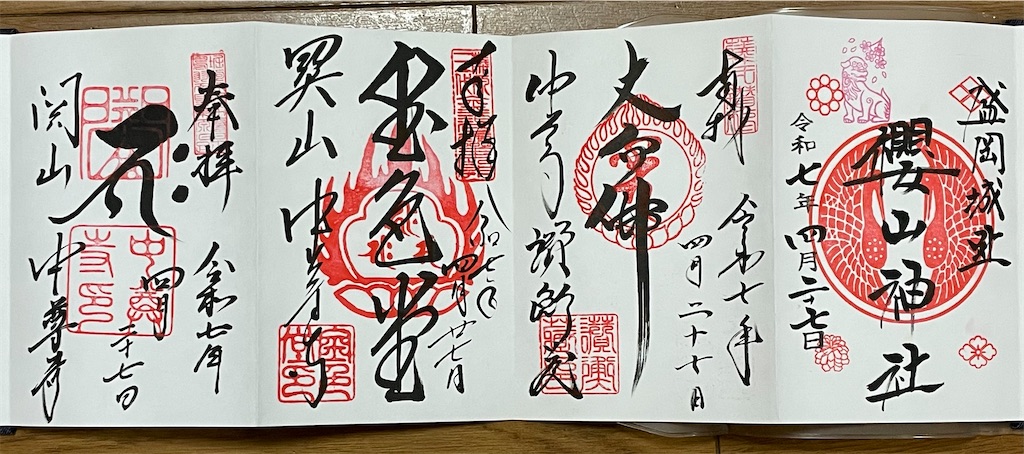 盛岡城址
櫻山神社
令和七年四月二十七日
奉拝 令和七年
四月二十七日
丈六佛
中尊寺 讃衡蔵
奉拝 令和七年
四月廿七日
金色堂
関山 中尊寺
金色堂印
奉拝 令和七年
四月二十七日
関山 中尊寺
中尊寺印